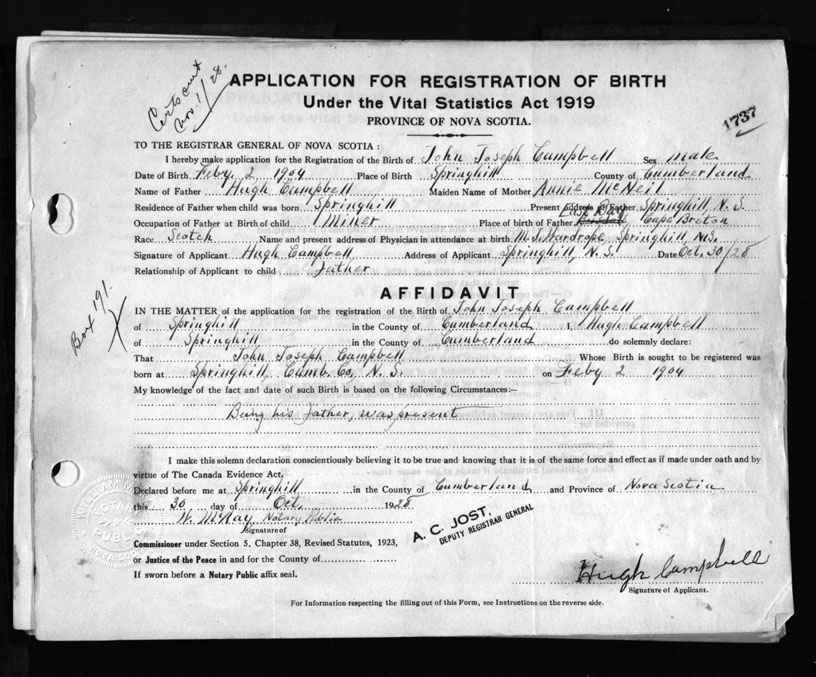 Certs cut
Nov. 1/28.
APPLICATION FOR REGISTRATION OF BIRTH
Under the Vital Statistics Act 1919
PROVINCE OF NOVA SCOTIA.
1737
TO THE REGISTRAR GENERAL OF NOVA SCOTIA:
I hereby make application for the Registration of the Birth of John Joseph Campbell Sex male
Date of Birth Feby. 2 1904 Place of Birth Springhill County of Cumberland
Name of Father Hugh Campbell Maiden Name of Mother Annie McNeil
Residence of Father when child was born Springhill Present Address of Father Springhill N.S.
Occupation of Father at Birth of child Miner Place of birth of Father East Bay Cape Breton
Race Scotch Name and present address of Physician in attendance at birth M.J. Wardrope, Springhill, N.S.
Signature of Applicant Hugh Campbell Address of Applicant Springhill, N.S. Date Oct. 30/28
Relationship of Applicant to child Father
AFFIDAVIT
Box 191.
IN THE MATTER of the application for the registration of the Birth of John Joseph Campbell
of Springhill in the County of Cumberland I, Hugh Campbell
of Springhill in the County of Cumberland do solemnly declare:
That John Joseph Campbell Whose Birth is sought to be registered was
born at Springhill, Cumb. Co, N.S. on Feby 2 1904
My knowledge of the fact and date of such Birth is based on the following Circumstances:—
Being his father, was present
I make this solemn declaration conscientiously believing it to be true and knowing that it is of the same force and effect as if made under oath and by
virtue of The Canada Evidence Act,
Declared before me at Springhill in the County of Cumberland and Province of Nova Scotia
this 30 day of Oct. 1928
W. McKay Notary Public
Signature of
A. C. JOST.
DEPUTY REGISTRAR GENERAL
Commissioner under Section 5, Chapter 38, Revised Statutes, 1923,
or Justice of the Peace in and for the County of
If sworn before a Notary Public affix seal.
Hugh Campbell
Signature of Applicant.
For Information respecting the filling out of this Form, see Instructions on the reverse side.